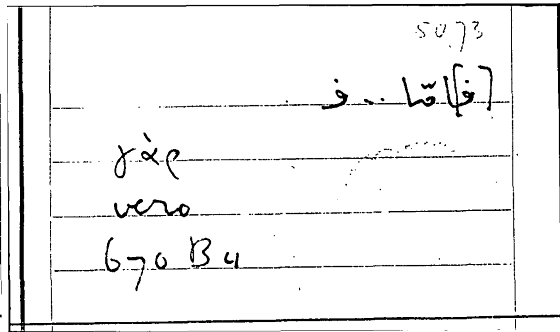 50.73
[ف]امّا .. ف
γὰρ
vero
670 B 4